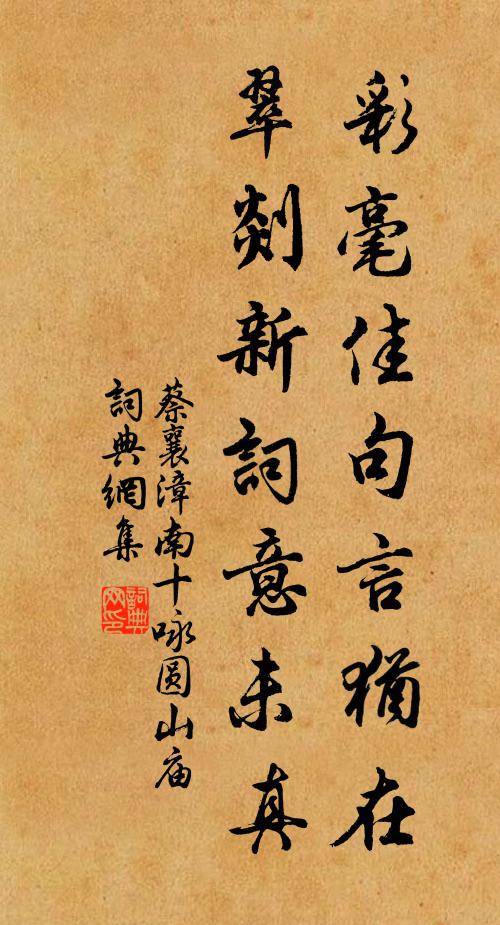 彩毫佳句言猶在
翠剡新詞意未真
蔡襄漳南十咏圆山庙
詞典網集
詞典网印